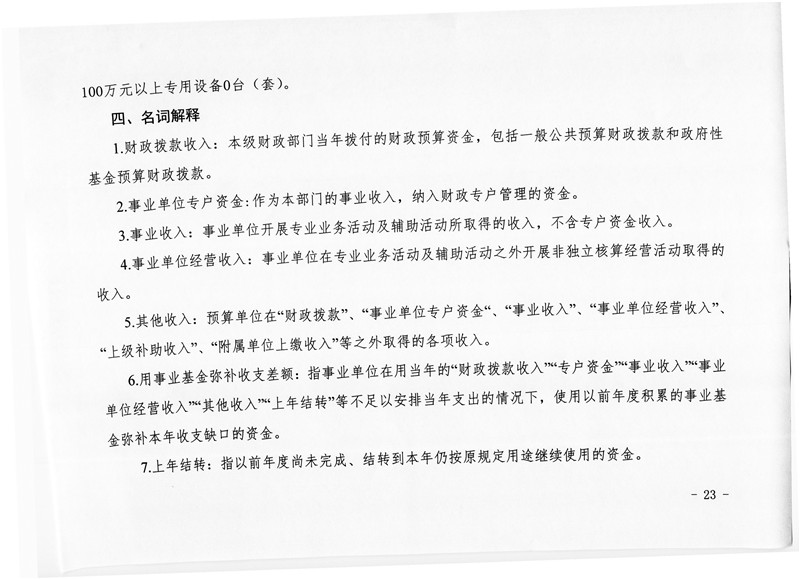 100万元以上专用设备0台（套）。
四、名词解释
1.财政拨款收入：本级财政部门当年拨付的财政预算资金，包括一般公共预算财政拨款和政府性
基金预算财政拨款。
2.事业单位专户资金:作为本部门的事业收入，纳入财政专户管理的资金。
3.事业收入：事业单位开展专业业务活动及辅助活动所取得的收入，不含专户资金收入。
4.事业单位经营收入：事业单位在专业业务活动及辅助活动之外开展非独立核算经营活动取得的
收入。
5.其他收入：预算单位在“财政拨款”、“事业单位专户资金“、“事业收入”、“事业单位经营收入”、
“上级补助收入”、“附属单位上缴收入”等之外取得的各项收入。
6.用事业基金弥补收支差额：指事业单位在用当年的“财政拨款收入”“专户资金”“事业收入”“事业
单位经营收入”“其他收入”“上年结转”等不足以安排当年支出的情况下，使用以前年度积累的事业基
金弥补本年收支缺口的资金。
7.上年结转：指以前年度尚未完成、结转到本年仍按原规定用途继续使用的资金。
- 23 -